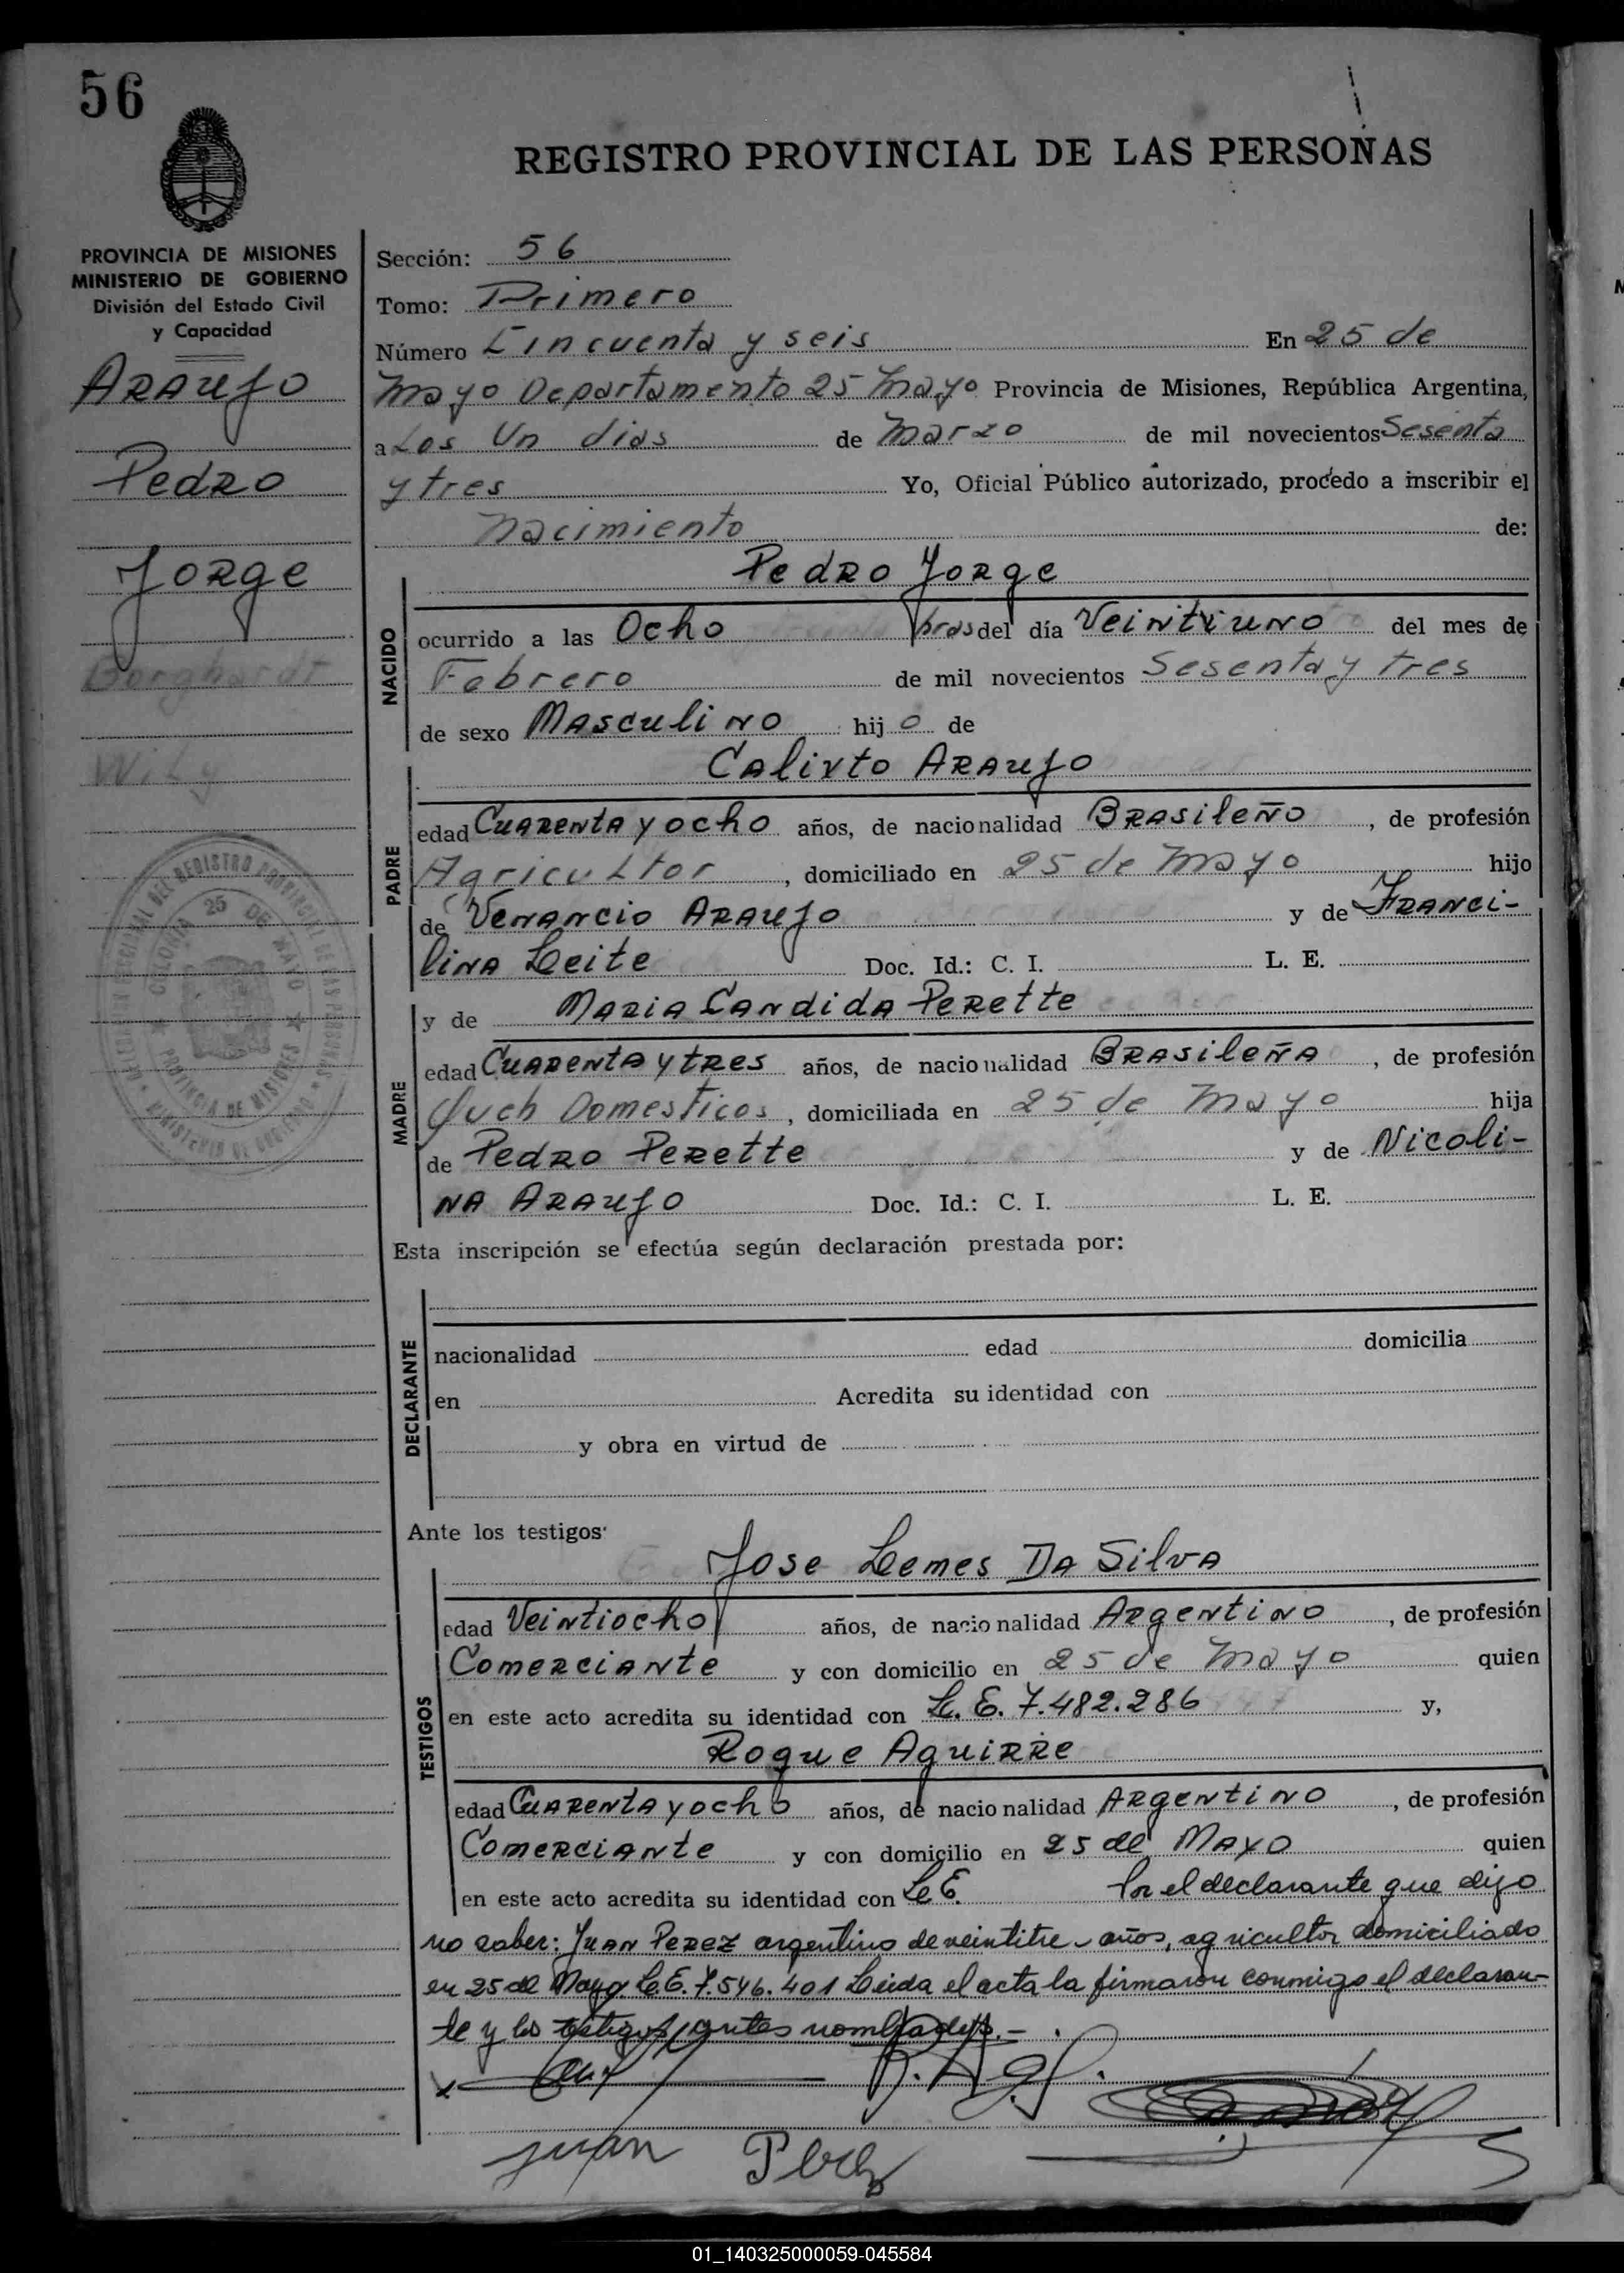 56
REGISTRO PROVINCIAL DE LAS PERSONAS
PROVINCIA DE MISIONES
MINISTERIO DE GOBIERNO
División del Estado Civil
y Capacidad
Araujo
Pedro
Jorge
Borghardt
Wily
DELEGACION SECCIONAL DEL REGISTRO PROVINCIAL DE LAS PERSONAS
COLONIA 25 DE MAYO
PROVINCIA DE MISIONES
MINISTERIO DE GOBIERNO
Sección: 56
Tomo: Primero
Número Cincuenta y seis En 25 de
Mayo Departamento 25 Mayo Provincia de Misiones, República Argentina,
a Los Un dias de Marzo de mil novecientos Sesenta
y tres Yo, Oficial Público autorizado, procedo a inscribir el
Nacimiento de:
Pedro Jorge
NACIDO
ocurrido a las Ocho horas del día Veintiuno del mes de
Febrero de mil novecientos Sesenta y tres
de sexo Masculino hij o de
Calixto Araujo
PADRE
edad Cuarenta y ocho años, de nacionalidad Brasileño, de profesión
Agricultor, domiciliado en 25 de Mayo hijo
de Venancio Araujo y de Franci-
lina Leite Doc. Id.: C. I. L. E.
y de Maria Candida Perette
MADRE
edad Cuarenta y tres años, de nacionalidad Brasileña, de profesión
Queh Domesticos, domiciliada en 25 de Mayo hija
de Pedro Perette y de Nicoli-
na Araujo Doc. Id.: C. I. L. E.
Esta inscripción se efectúa según declaración prestada por:
DECLARANTE
nacionalidad edad domicilia
en Acredita su identidad con
y obra en virtud de
Ante los testigos
Jose Lemes Da Silva
TESTIGOS
edad Veintiocho años, de nacionalidad Argentino, de profesión
Comerciante y con domicilio en 25 de Mayo quien
en este acto acredita su identidad con L. E. 7.482.286 y,
Roque Aguirre
edad Cuarenta y ocho años, de nacionalidad Argentino, de profesión
Comerciante y con domicilio en 25 de Mayo quien
en este acto acredita su identidad con L.E. Por el declarante que dijo
no saber: Juan Perez argentino de veintitre años, agricultor domiciliado
en 25 de Mayo L.E. 7.546.401 Leida el acta la firmaron conmigo el declaran-
te y los testigos antes nombrados.-
R. Ag
Juan Perez
01_140325000059-045584